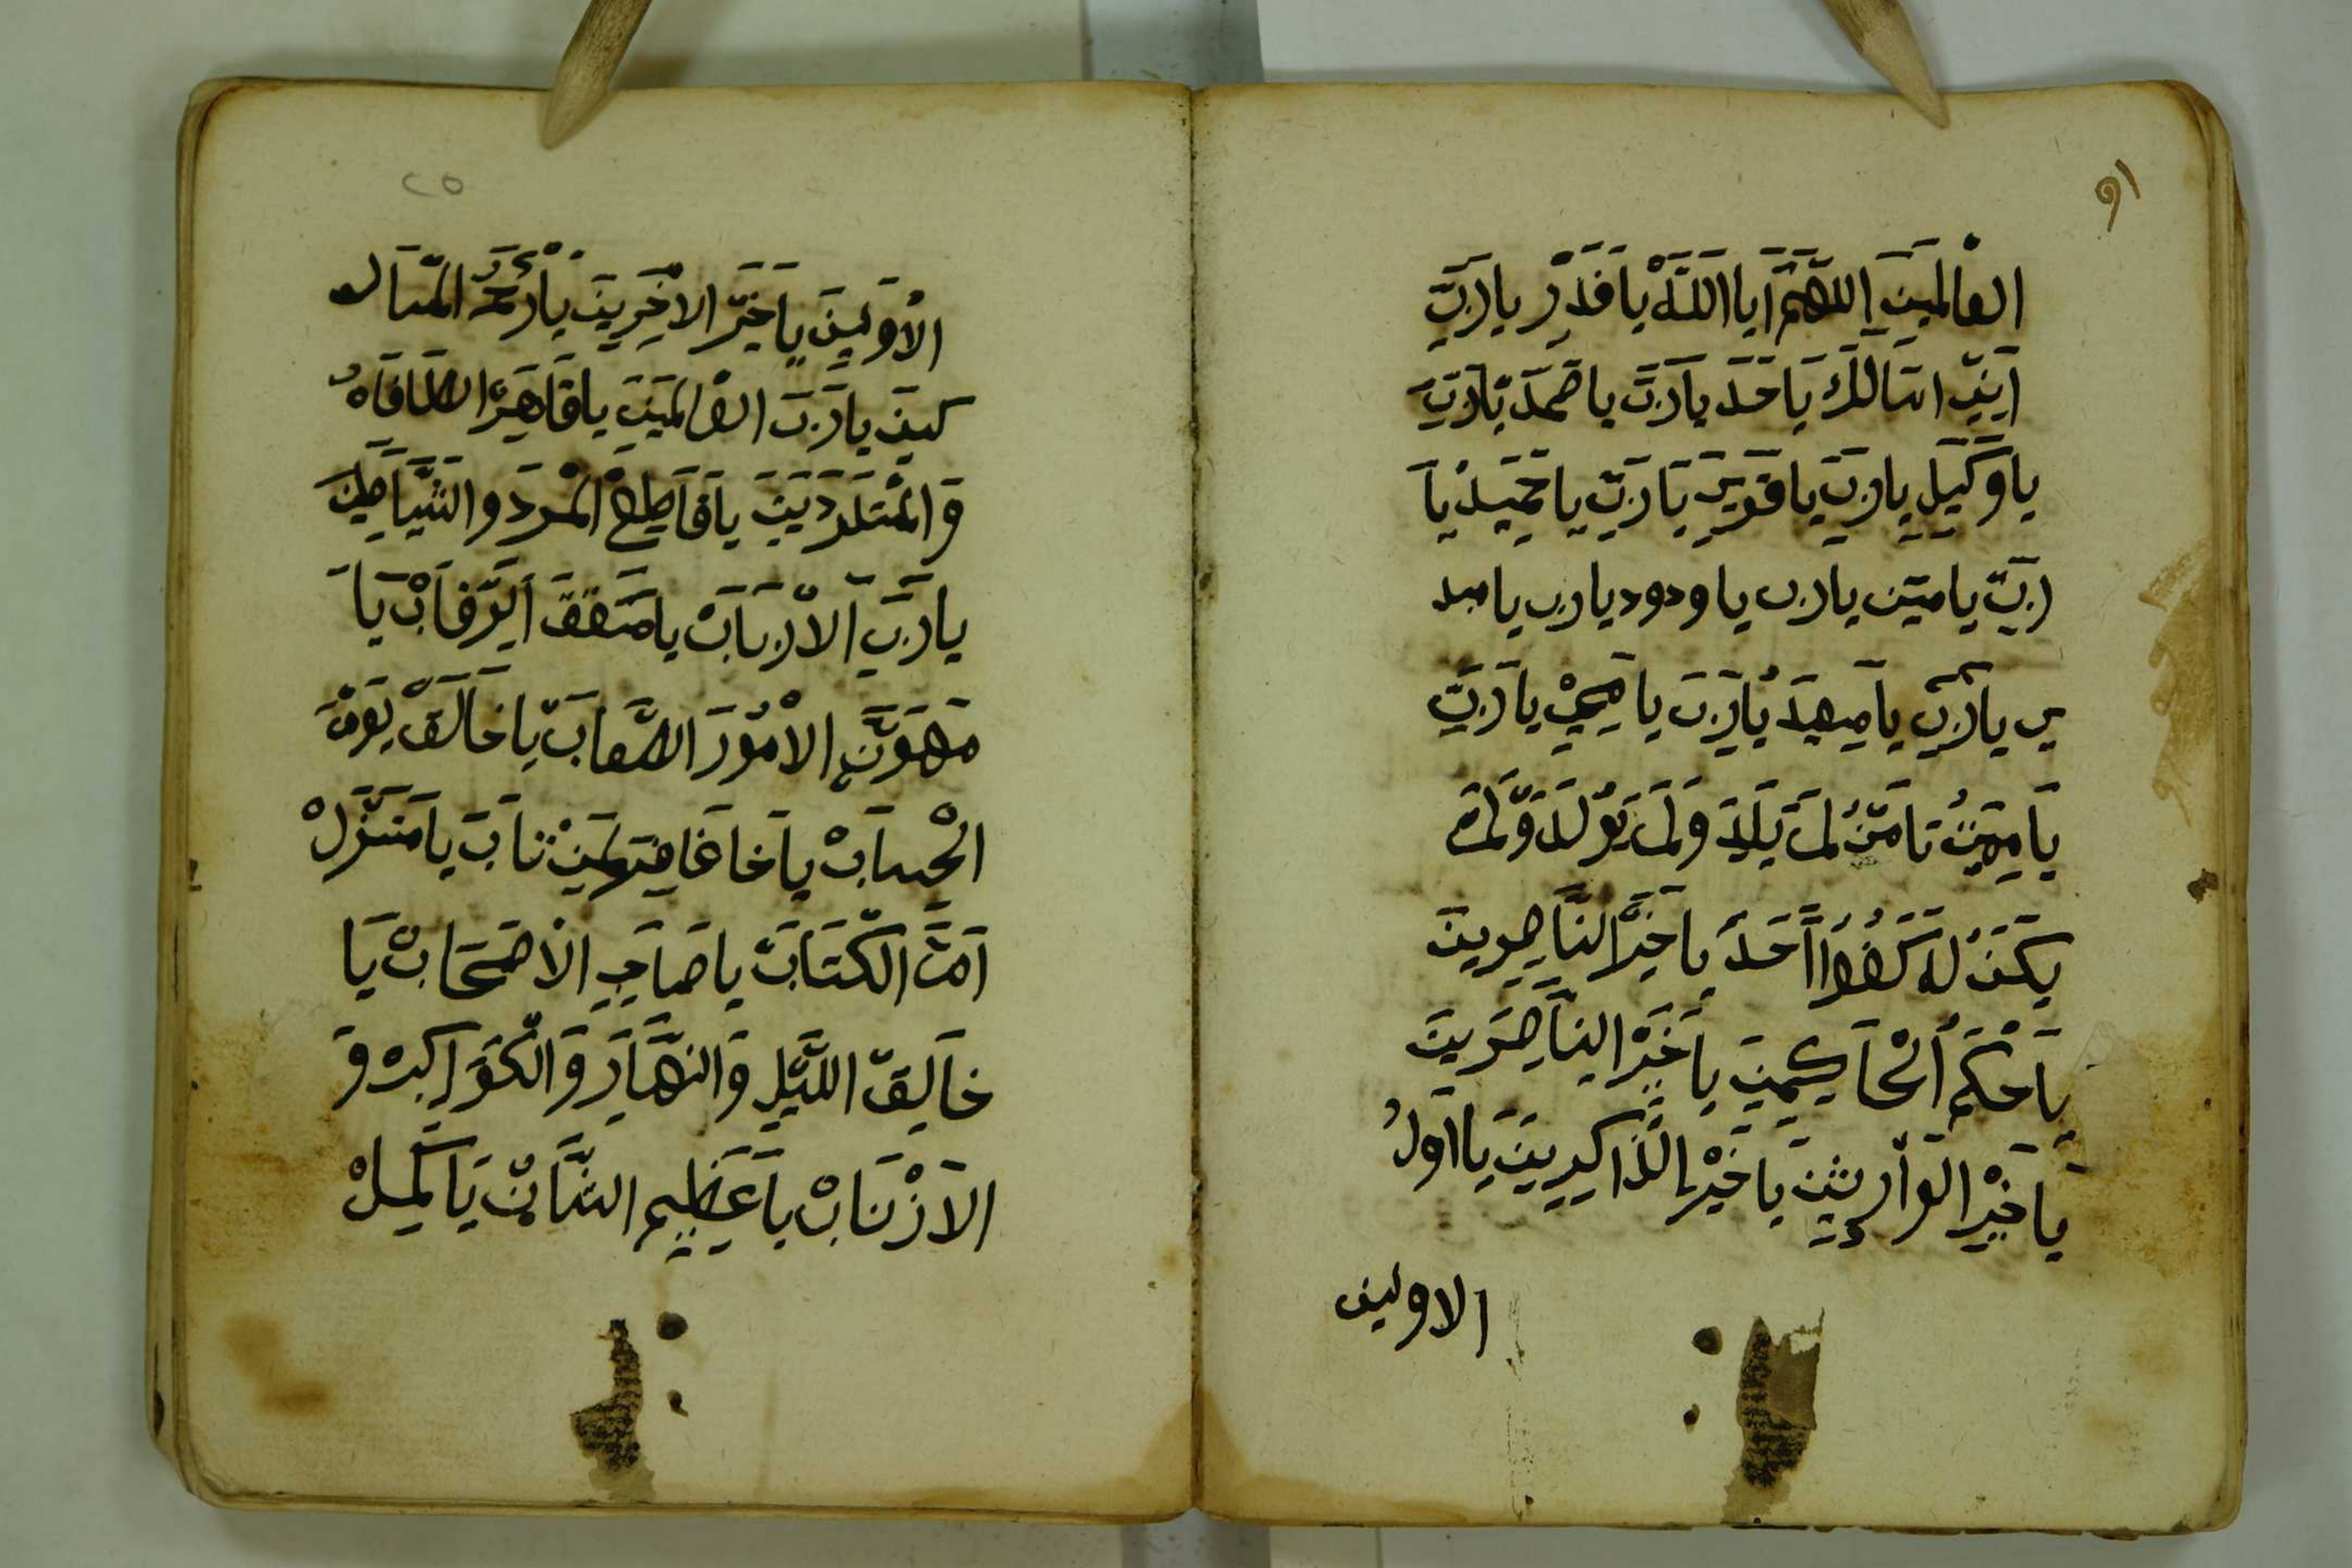 ٩١
العالمين اللهم ايا الله يا قدر يا رب
اني اسالك يا حد يا رب يا صمد يا رب
يا وكيل يا رب يا قوي يا رب يا حميد يا
رب يا متين يا رب يا ودود يا رب يا مبد
ي يا رب يا ميهيد يا رب يا محي يا رب
يا مميت يا من لم يلد ولم يولد ولم
يكن له كفوا احد يا خير الناصرين
يا حكم الحاكمين يا خير الناصرين
يا خير الوارثين يا خير الذاكرين يا اول
الاولين
٢٥
الاولين يا خير الاخرين يا رحم المسا
كين يا رب العالمين يا قاهر الطاغاه
و المتمردين يا قاطع المرد والشياطين
يا رب الارباب يا معتق الرقاب يا
مهون الامور الصعاب يا خالق يوم
الحساب يا غافر لمن تاب يا منزل
ام الكتاب يا صاحب الاصحاب يا
خالق الليل والنهار والكواكب و
الازناب يا عظيم الشان يا كميل